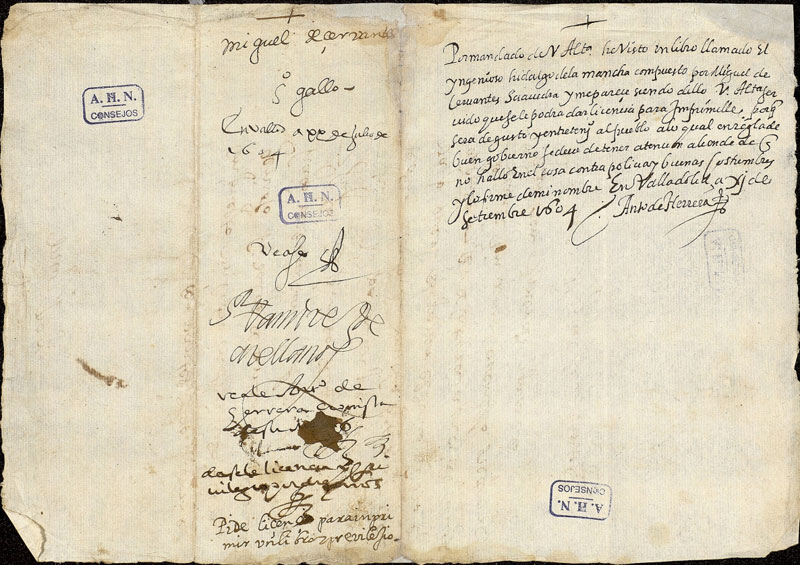 A. H. N.
CONSEJOS
Miguel de cervantes
Sº gallo
En Vallid a xx de Julio de
1604
A. H. N.
CONSEJOS
Vease
Ramirez de
arellano
Veale Antº de
Herrera Cronista
de su
dasele licencia
por diez años
Pide licencia para inpri
mir un libro y previlesio
Por mandado de V Altª he visto un libro llamado El
yngenioso hidalgo de la mancha compuesto por Miguel de
Cervantes Saavedra y me parece siendo dello V. Altª ser
vido que se le podra dar licencia para Imprimille, porq
sera de gusto y entretenimº al pueblo a lo qual en regla de
buen gobierno se deve de tener atencion aliende de q
no hallo en el cosa contra policia y buenas costumbres
y lo firme de mi nombre En Valladolid a XI de
Setiembre 1604 Antº de Herrera
A. H. N.
A. H. N.
CONSEJOS